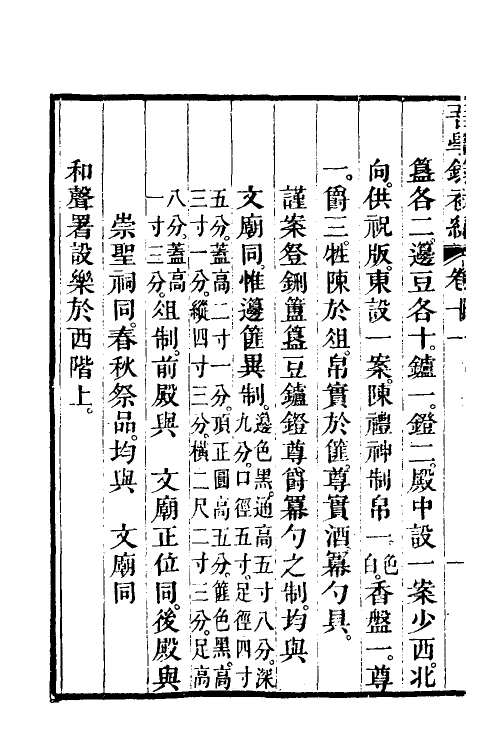 吾學錄初編　卷十
簋各二。籩豆各十。鑪一。鐙二。殿中設一案少西。北
向。供祝版。東設一案。陳禮神制帛一。色白。香盤一。尊
一。爵三。牲陳於俎。帛實於篚。尊實酒。冪勺具。
謹案豋鉶簠簋豆鑪鐙尊爵冪勺之制。均與
文廟同。惟籩篚異制。籩色黑。通高五寸八分。深
九分。口徑五寸。足徑四寸
五分。蓋高二寸一分。頂正圓。高五分。篚色黑。高
三寸一分。縱四寸三分。橫二尺二寸三分。足高
八分。蓋高
一寸三分。俎制。前殿與　文廟正位同。後殿與
崇聖祠同。春秋祭品。均與　文廟同
和聲署設樂於西階上。